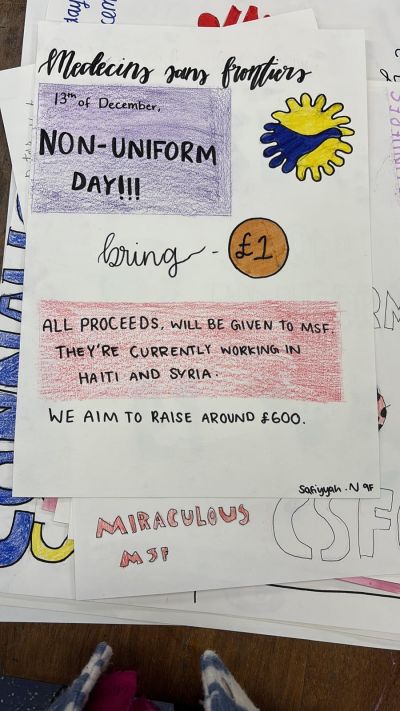 Medecins sans frontiers
13th of December,
NON-UNIFORM
DAY!!!
bring - £1
ALL PROCEEDS, WILL BE GIVEN TO MSF.
THEY'RE CURRENTLY WORKING IN
HAITI AND SYRIA.
WE AIM TO RAISE AROUND £600.
Safiyyah.N 9F
MIRACULOUS
MSF